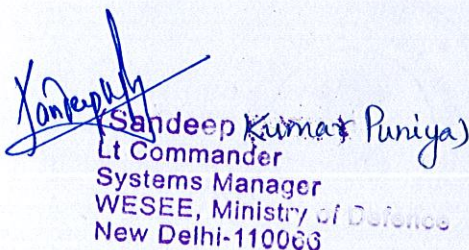 Sandeep
(Sandeep Kumar Puniya)
Lt Commander
Systems Manager
WESEE, Ministry of Defence
New Delhi-110066